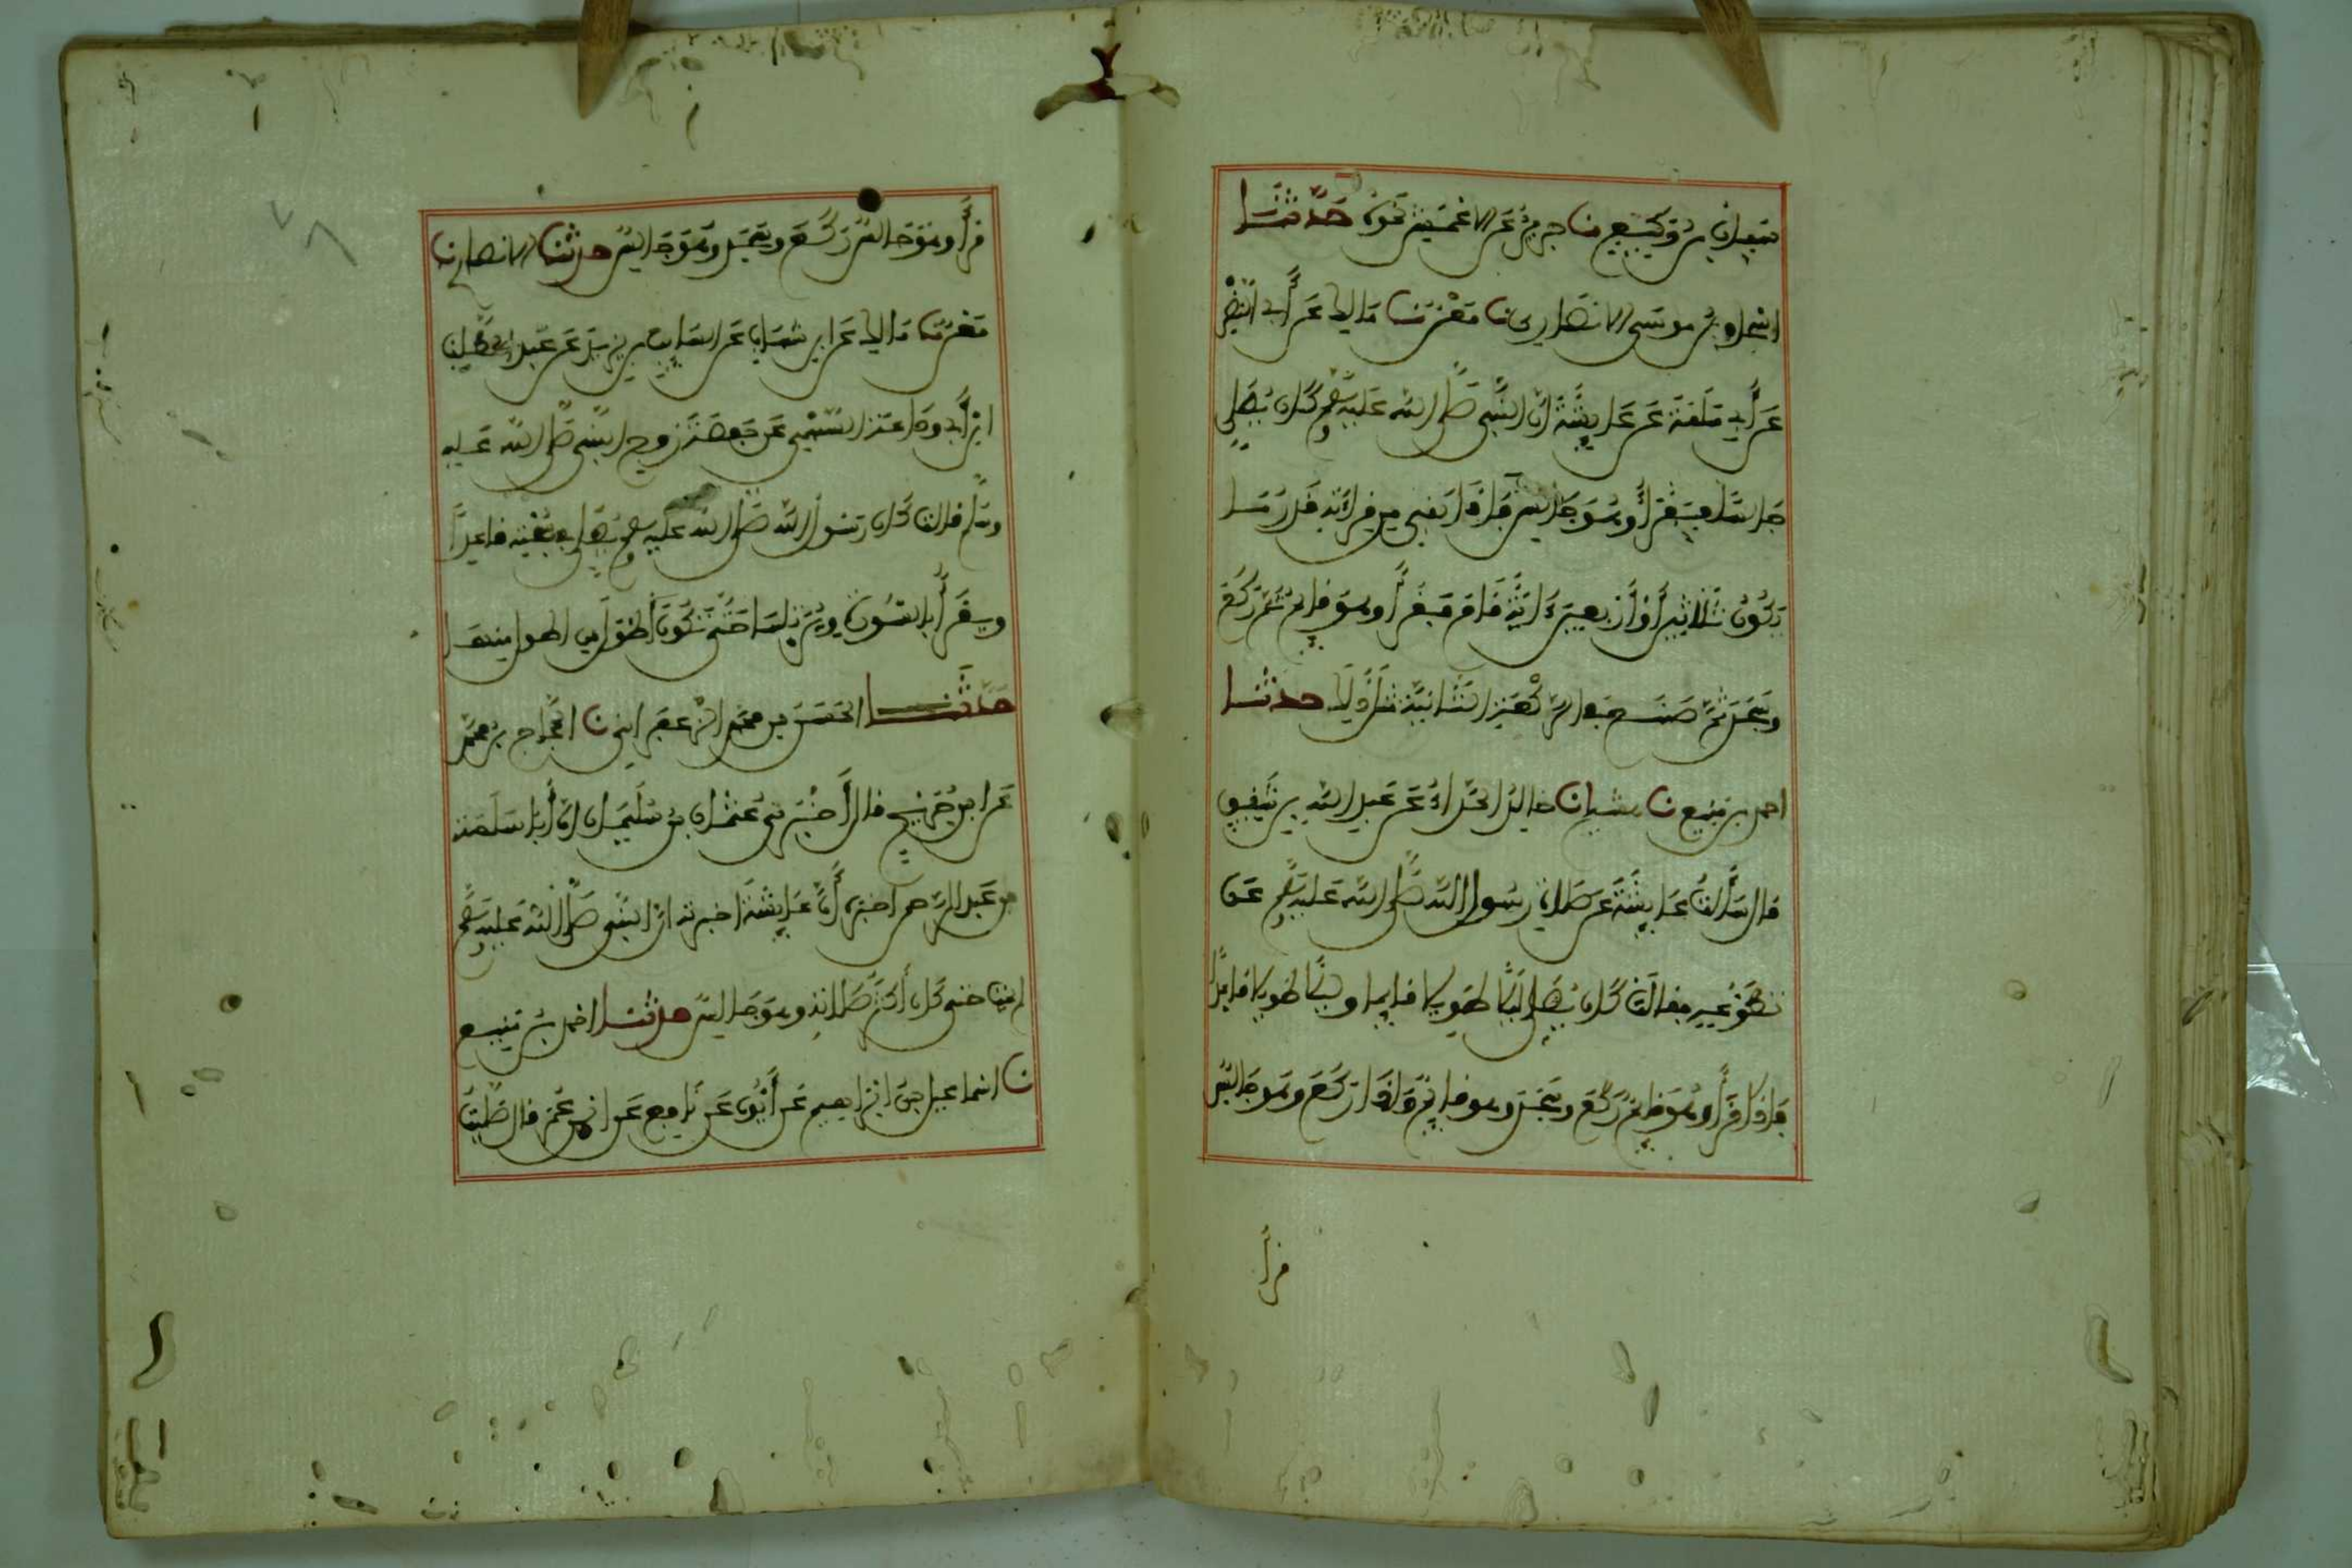 سفيان بن وكيع نا جرير عن الاعمش نحوه حدثنا
اسحاق بن موسى الانصاري نا معن نا مالك عن أبي النضر
عن أبي سلمة عن عايشة ان النبي صلى الله عليه وسلم كان يصلي
جالسا فيقرأ وهو جالس فإذا بقي من قراءته قدر ما
يكون ثلاثين أو أربعين ءاية قام فقرأ وهو قايم ثم ركع
وسجد ثم صنع في الركعة الثانية مثل ذلك حدثنا
احمد بن منيع نا هشيم انا خالد الحذاء عن عبد الله بن شقيق
قال سألت عايشة عن صلاة رسول الله صلى الله عليه وسلم عن
تطوعه فقالت كان يصلي ليلا طويلا قايما وليلا طويلا قاعدا
فإذا قرأ وهو قايم ركع وسجد وهو قايم وإذا ركع وهو جالس
قرأ
قرأ وهو جالس ركع وسجد وهو جالس حدثنا الانصاري نا
معن نا مالك عن ابن شهاب عن السايب بن يزيد عن عبد المطلب
ابن أبي وداعة السهمي عن حفصة زوج النبي صلى الله عليه
وسلم قالت كان رسول الله صلى الله عليه وسلم يصلي في سبحته قاعدا
ويقرأ بالسورة ويرتلها حتى تكون أطول من اطول منها
حدثنا الحسن بن محمد الزعفراني نا الحجاج بن محمد
عن ابن جريج قال أخبرني عثمان بن سليمان ان أبا سلمة
بن عبد الرحمن اخبره أن عايشة اخبرته ان النبي صلى الله عليه وسلم
لم يمت حتى كان أكثر صلاته وهو جالس حدثنا احمد بن منيع
نا اسماعيل بن ابراهيم عن أيوب عن نافع عن ابن عمر قال صليت
٧٨